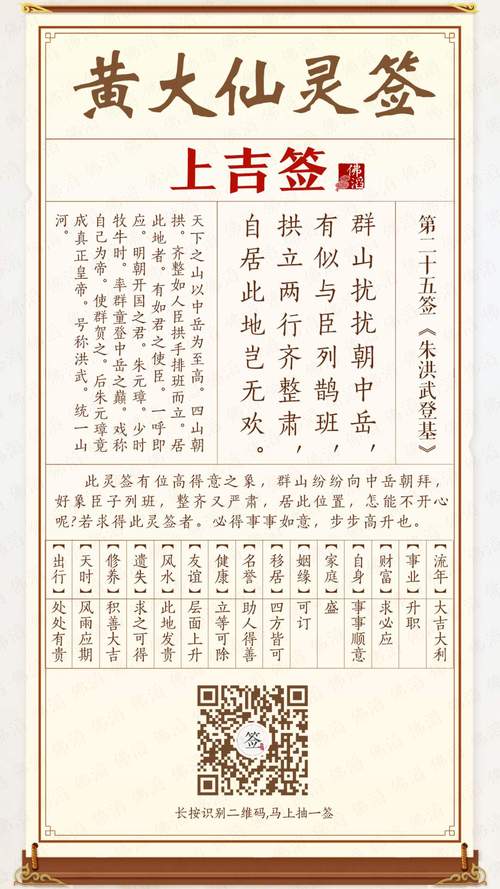 黄大仙灵签
上吉签
佛滔
第二十五签《朱洪武登基》
群山扰扰朝中岳，
有似与臣列鹊班，
拱立两行齐整肃，
自居此地岂无欢。
天下之山以中岳为至高。四山朝
拱。齐整如人臣拱手排班而立。居
此地者。有如君之使臣。一呼即
应。明朝开国之君。朱元璋。少时
牧牛时。率群童登中岳之巅。戏称
自己为帝。使群贺之。后朱元璋竟
成真正皇帝。号称洪武。统一山
河。
此灵签有位高得意之象，群山纷纷向中岳朝拜，
好象臣子列班，整齐又严肃，居此位置，怎能不开心
呢?若求得此灵签者。必得事事如意，步步高升也。
【流年】大吉大利
【事业】升职
【财富】求必应
【自身】事事顺意
【家庭】盛
【姻缘】可订
【移居】四方皆可
【名誉】助人得善
【健康】立等可除
【友谊】层面上升
【风水】此地发贵
【遗失】求之可得
【修养】积善大吉
【天时】风雨应期
【出行】处处有贵
签
长按识别二维码,马上抽一签